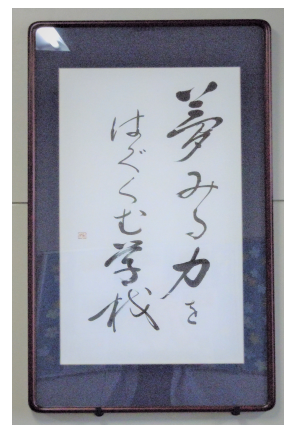 夢みる力を
はぐくむ学校